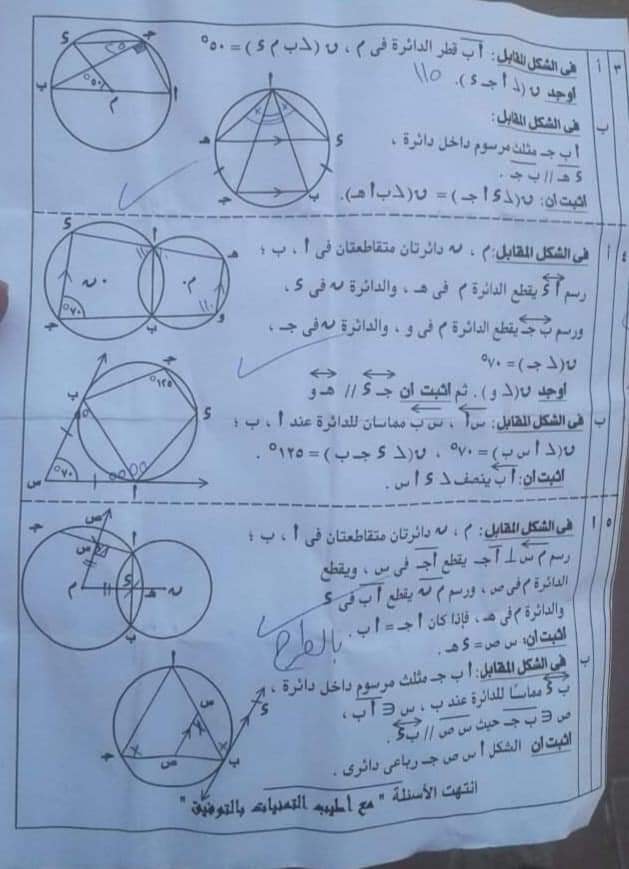 ٣ أ في الشكل المقابل: أ ب قطر الدائرة في م ، ن (د ب م ء) = ٥٠°
أوجد ن (د أ جـ ء). ١١٥
ب في الشكل المقابل:
أ ب جـ مثلث مرسوم داخل دائرة ،
ء هـ // ب جـ .
اثبت ان: ن (د ء أ جـ) = ن (د ب أ هـ).
٤ أ في الشكل المقابل: م ، ن دائرتان متقاطعتان في أ ، ب ؛
رسم أ ء يقطع الدائرة م في هـ ، والدائرة ن في ء ،
ورسم ب جـ يقطع الدائرة م في و ، والدائرة ن في جـ ،
ن (د جـ) = ٧٠°
أوجد ن (د و) . ثم اثبت ان جـ ء // هـ و
ب في الشكل المقابل: س أ ، س ب مماسان للدائرة عند أ ، ب ؛
ن (د أ س ب) = ٧٠° ، ن (د ء جـ ب) = ١٢٥° .
اثبت ان: أ ب ينصف د ء أ س .
٥ أ في الشكل المقابل: م ، ن دائرتان متقاطعتان في أ ، ب ؛
رسم م س ⊥ أ جـ يقطع أ جـ في س ، ويقطع
الدائرة م في ص ، ورسم م ن يقطع أ ب في ء
والدائرة م في هـ ، فإذا كان أ جـ = أ ب .
اثبت ان: س ص = ء هـ .
بالطرح
ب في الشكل المقابل: أ ب جـ مثلث مرسوم داخل دائرة ،
ب ء مماسا للدائرة عند ب ، س ∋ أ ب ،
ص ∋ ب جـ حيث س ص // ب ء .
اثبت ان الشكل أ س ص جـ رباعى دائرى .
انتهت الأسئلة " مع أطيب التمنيات بالتوفيق "